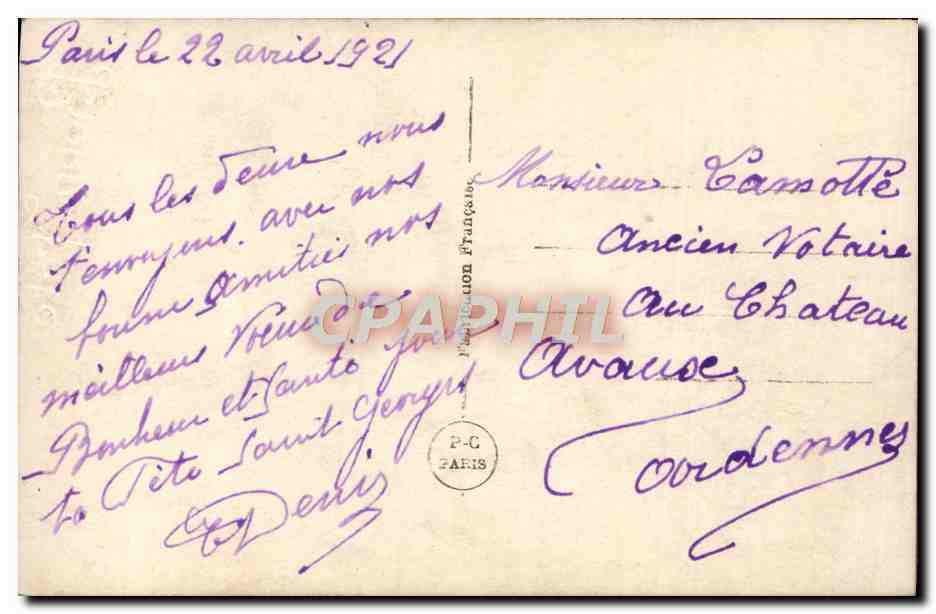 Paris le 22 avril 1921
Tous les deux nous
t'envoyons avec nos
bonne Amitiés nos
meilleurs Voeux de
Bonheur et Santé pour
ta Fête Saint Georges
Denis
Fabrication Française
P-C
PARIS
Monsieur Lamotte
Ancien Notaire
Au Chateau
Avaux
Ardennes
CPAPHIL